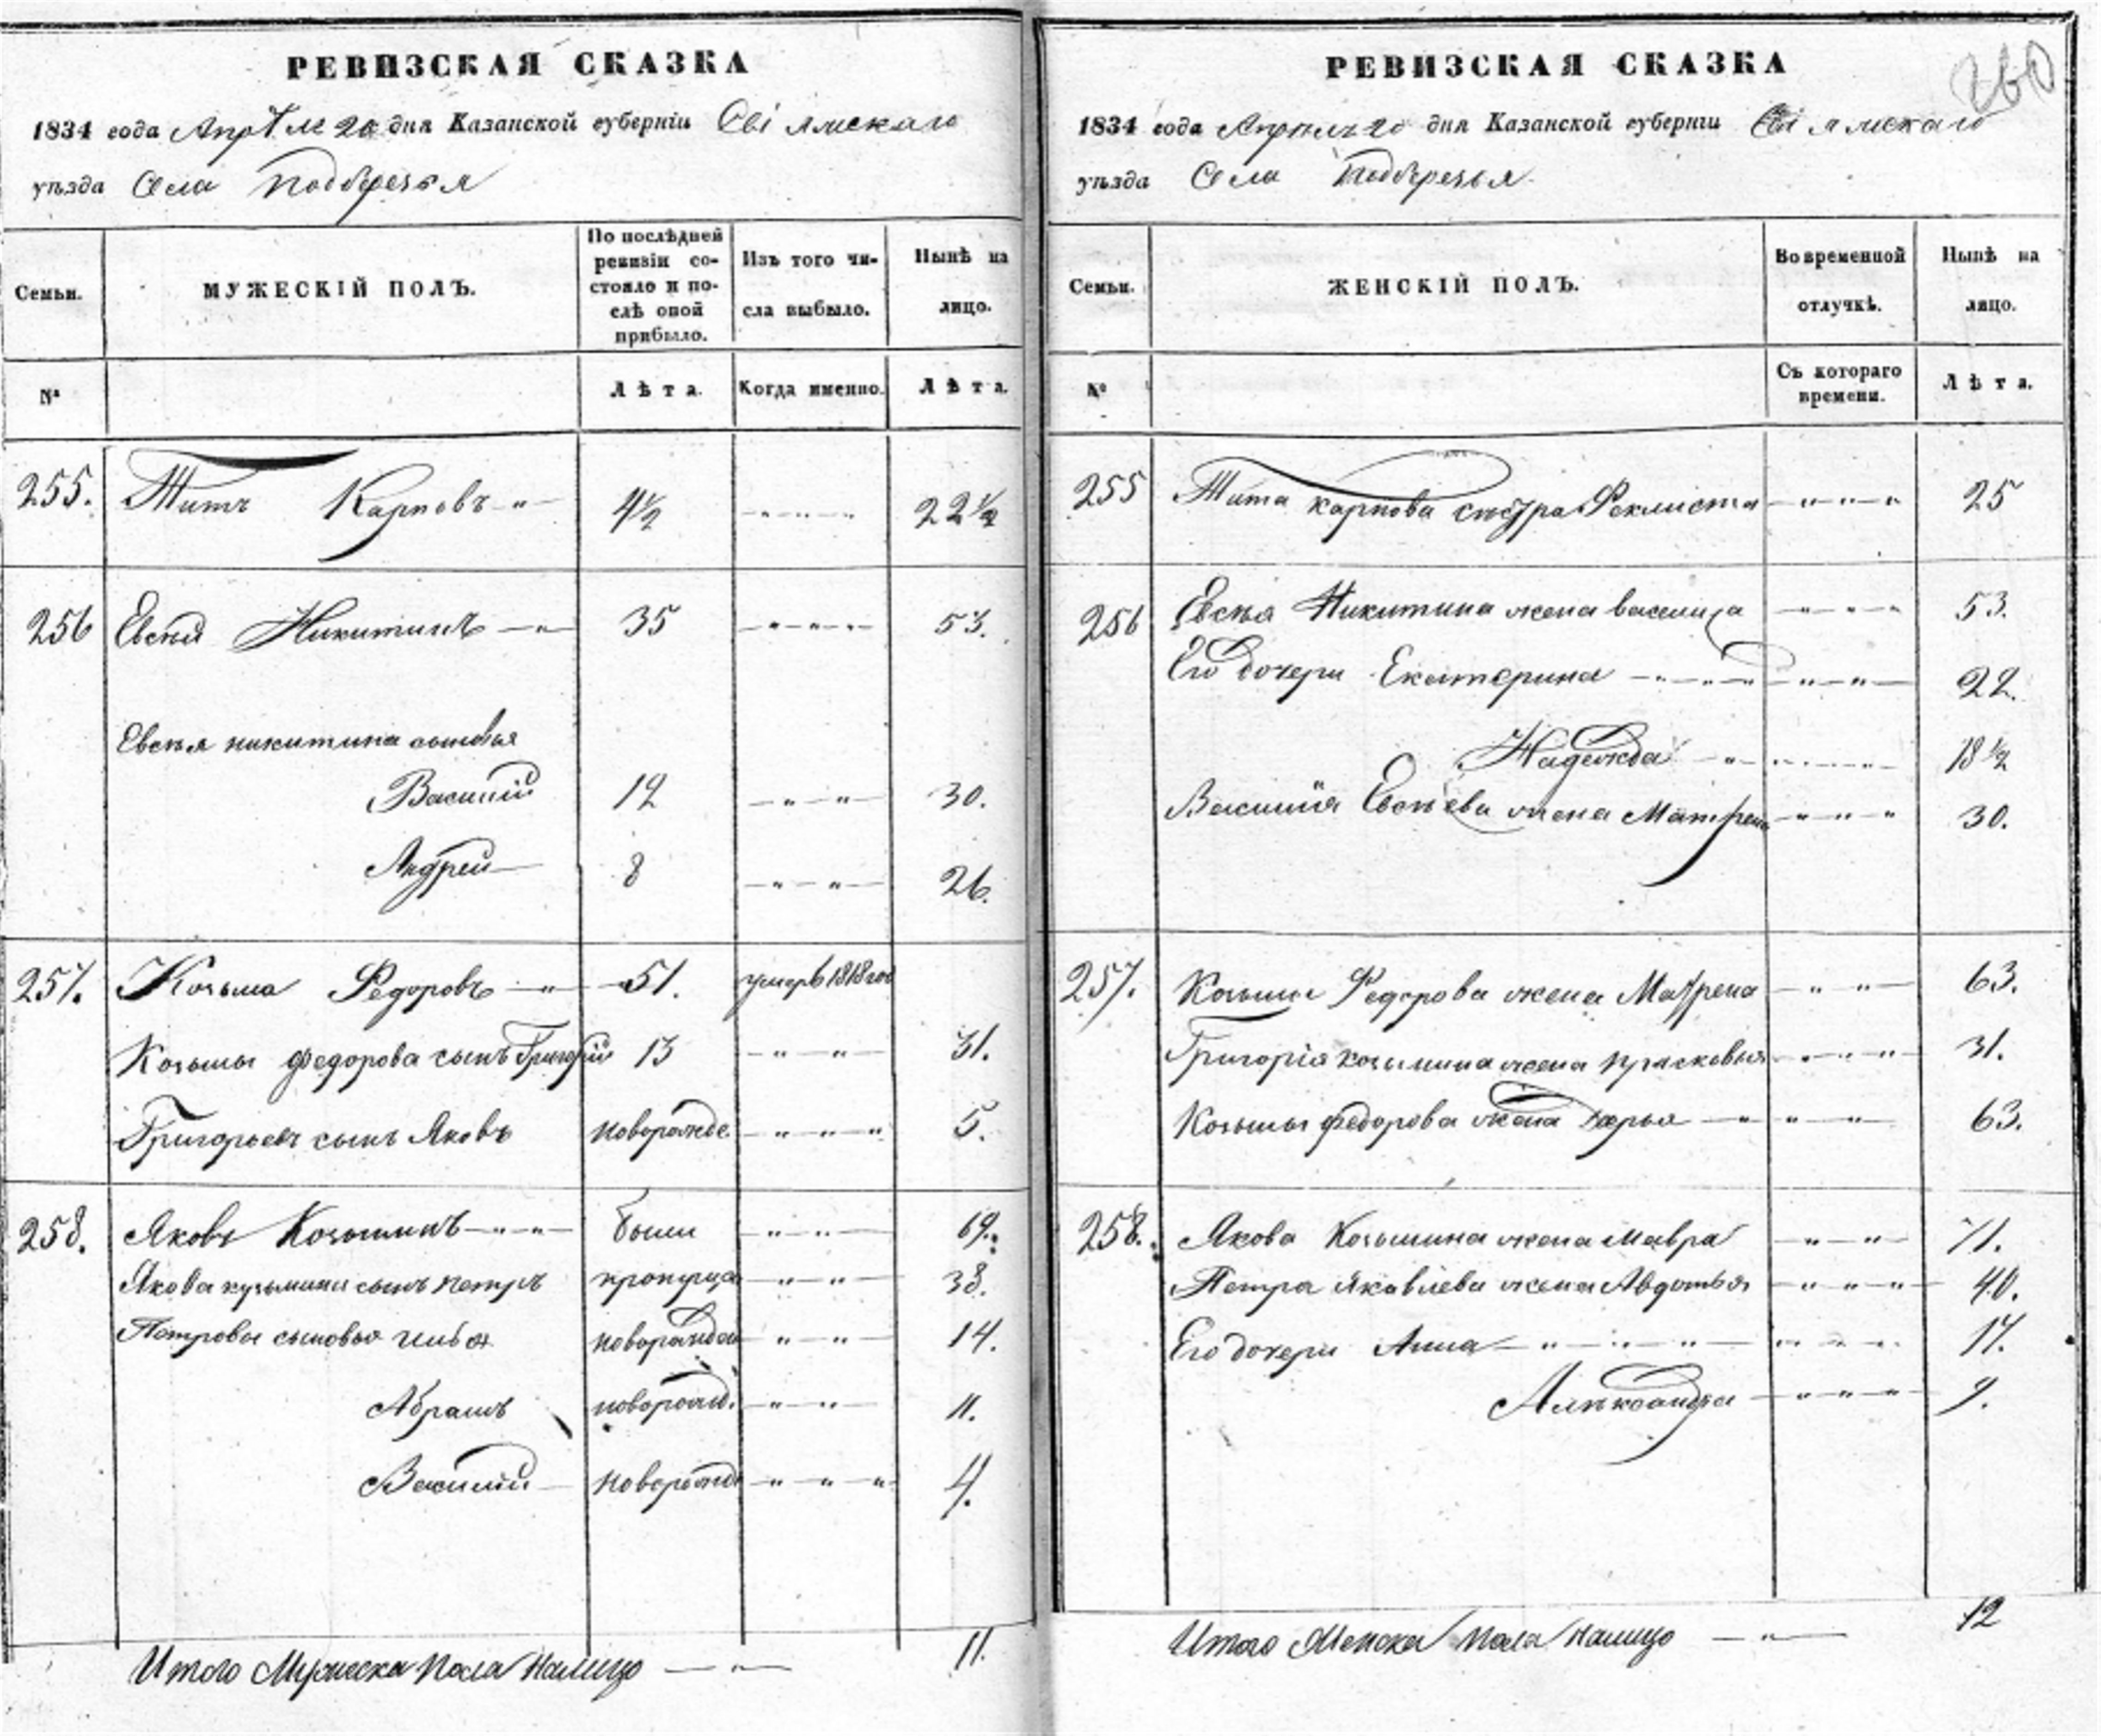 РЕВИЗСКАЯ СКАЗКА
1834 года Апреля 20 дня Казанской губерніи Свіяжскаго
уѣзда Села Подберезья
Семьи.
МУЖЕСКІЙ ПОЛЪ.
По послѣдней ревизіи состояло и послѣ оной прибыло.
Изъ того числа выбыло.
Нынѣ на лицо.
№
Лѣта.
Когда именно.
Лѣта.
255. Титъ Карповъ 4½ 22½
256 Евсей Никитинъ 35 53.
Евсея никитина сыновья
Василій 12 30.
Андрей 8 26.
257. Козьма Федоровъ 51. умеръ 1818 год
Козьмы федорова сынъ Григорій 13 31.
Григорьевъ сынъ Яковъ новорожде 5.
258. Яковъ Козьминъ были 69.
Якова кузьмина сынъ петръ пропуща 38.
Петровы сыновья новорожден 14.
Абрамъ новорожд. 11.
Василій новорожд 4.
Итого Мужеска Пола Налицо 11.
РЕВИЗСКАЯ СКАЗКА
260
1834 года Апреля 20 дня Казанской губерніи Свіяжскаго
уѣзда Села Подберезья
Семьи.
ЖЕНСКІЙ ПОЛЪ.
Во временной отлучкѣ.
Нынѣ на лицо.
№
Съ котораго времени.
Лѣта.
255 Тита карпова сестра Феклиста 25
256 Евсея Никитина жена василиса 53.
Его дочери Екатерина 22.
Надежда 18½
Василия Евсеева жена Матрена 30.
257. Козьмы Федорова жена Матрена 63.
Григорія козьмина жена прасковья 31.
Козьмы федорова жена дарья 63.
258. Якова Козьмина жена мавра 71.
Петра Яковлева жена Авдотья 40.
Его дочери Анна 17.
Александра 9.
Итого Женска Пола налицо 12